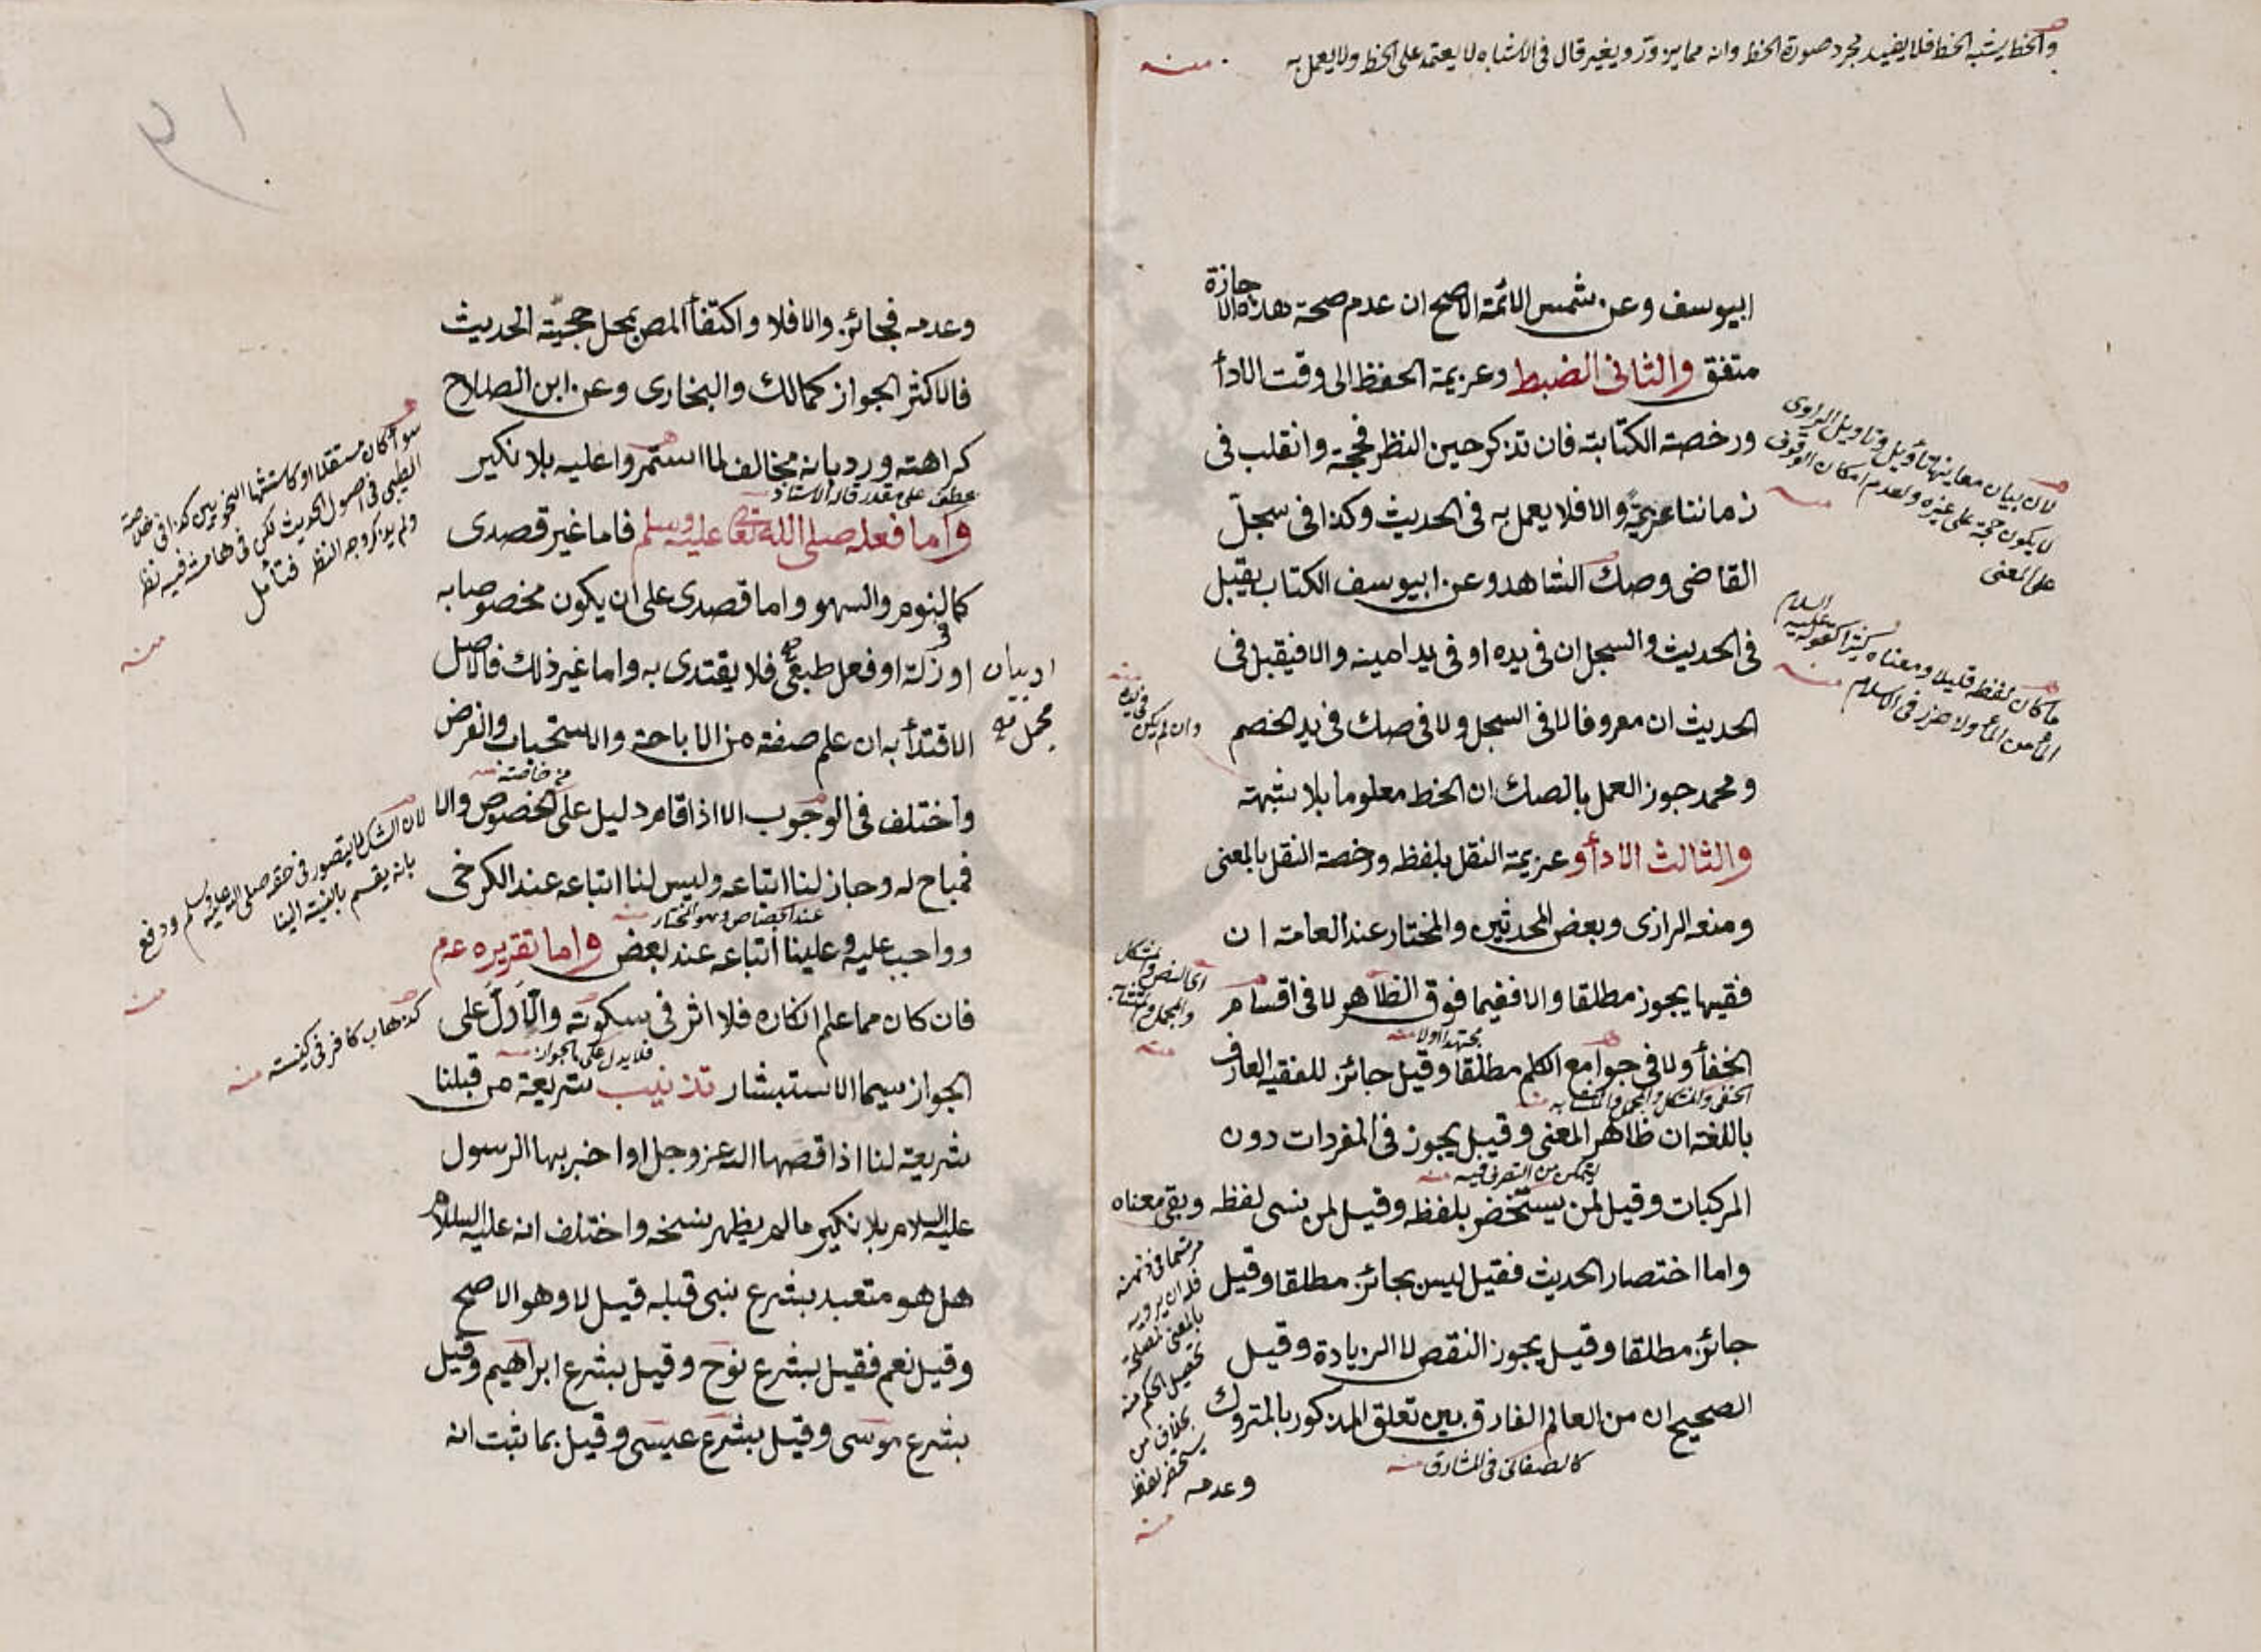 والخط يشبه الخط فلا يفيد مجرد صورة الخط وانه مما يزور ويغير قال في الاشباه لا يعتمد على الخط ولا يعمل به منه
ابيوسف وعن شمس الائمة الاصح ان عدم صحة هذه الاجازة
متفق والثاني الضبط وعزيمة الحفظ الى وقت الادأ
ورخصة الكتابة فان تذكر حين النظر فحجة وانقلب في
زماننا عزيمة والا فلا يعمل به في الحديث وكذا في سجل
القاضي وصك الشاهد وعن ابيوسف الكتاب يقبل
في الحديث والسجل ان في يده او في يد امينه والا فيقبل في
الحديث ان معروفا لا في السجل ولا في صك في يد الخصم
ومحمد جوز العمل بالصك ان الخط معلوما بلا شبهة
والثالث الادأ وعزيمة النقل بلفظه ورخصة النقل بالمعنى
ومنعه الرازي وبعض المحدثين والمختار عند العامة ان
فقيها يجوز مطلقا والا ففيما فوق الظاهر لا في اقسام
مجتهدا اولا منه
الخفأ ولا في جوامع الكلم مطلقا وقيل جائز للفقيه العارف
الخفي والمشكل والمجمل والمتشابه منه
باللغة ان ظاهر المعنى وقيل يجوز في المفردات دون
ليتمكن من التصرف فيه منه
المركبات وقيل لمن يستحضر بلفظه وقيل لمن نسى لفظه وبقي معناه
واما اختصار الحديث فقيل ليس بجائز مطلقا وقيل
جائز مطلقا وقيل يجوز النقص لا الزيادة وقيل
الصحيح ان من العالم الفارق بين تعلق المذكور بالمتروك
كالصغاني في المشارق منه
وعدمه
لان بيان معاينها تأويل وتأويل الراوي
لا يكون حجة على غيره ولعدم امكان الوقوف
على المعنى منه
ما كان لفظه قليلا ومعناه كثيرا كقوله عليه السلام
منه
وان لم يكن في يده منه
اي النص والمشكل
والمجمل والمتشابه
منه
مرتسما في ذهنه
فله ان يرويه
بالمعنى لمصلحة
تحصيل الحكم منه
بخلاف من
يستحضر لفظه
منه
وعدمه فجائز والا فلا واكتفأ المص بمحل حجية الحديث
فالاكثر الجواز كمالك والبخاري وعن ابن الصلاح
كراهته ورد بانه مخالف لما استمروا عليه بلا نكير
عطف على مقدر قاله الاستاذ
واما فعله صلى الله تعا عليه وسلم فاما غير قصدي
كالنوم والسهو واما قصدي على ان يكون مخصوصا به
او زلة او فعل طبعي فلا يقتدى به واما غير ذلك فالاصل
او بيان مجمل
الاقتدأ به ان علم صفته من الاباحة والاستحباب والفرض
واختلف في الوجوب الا اذا قام دليل على الخصوص والا
فمباح له وجاز لنا اتباعه وليس لنا اتباعه عند الكرخي
عند الجصاص وهو المختار منه
وواجب عليه وعلينا اتباعه عند بعض واما تقريره عم
فان كان مما علم انكاره فلا اثر في سكوته والاول على
فلا يدل على الجواز منه
الجواز سيما الاستبشار تذنيب شريعة من قبلنا
شريعة لنا اذا قصها الله عز وجل او اخبر بها الرسول
عليه السلام بلا نكير ما لم يظهر نسخه واختلف انه عليه السلام
هل هو متعبد بشرع نبي قبله قيل لا وهو الاصح
وقيل نعم فقيل بشرع نوح وقيل بشرع ابراهيم وقيل
بشرع موسى وقيل بشرع عيسى وقيل بما ثبت انه
سوأ كان مستقلا او كاستثنأ النحويين كذا في خلاصة
الطيبي في اصول الحديث لكن في هامشه فيه نظر
ولم يذكر وجه النظر فتأمل
منه
منه
كذهاب كافر في كنيسته منه
٣١